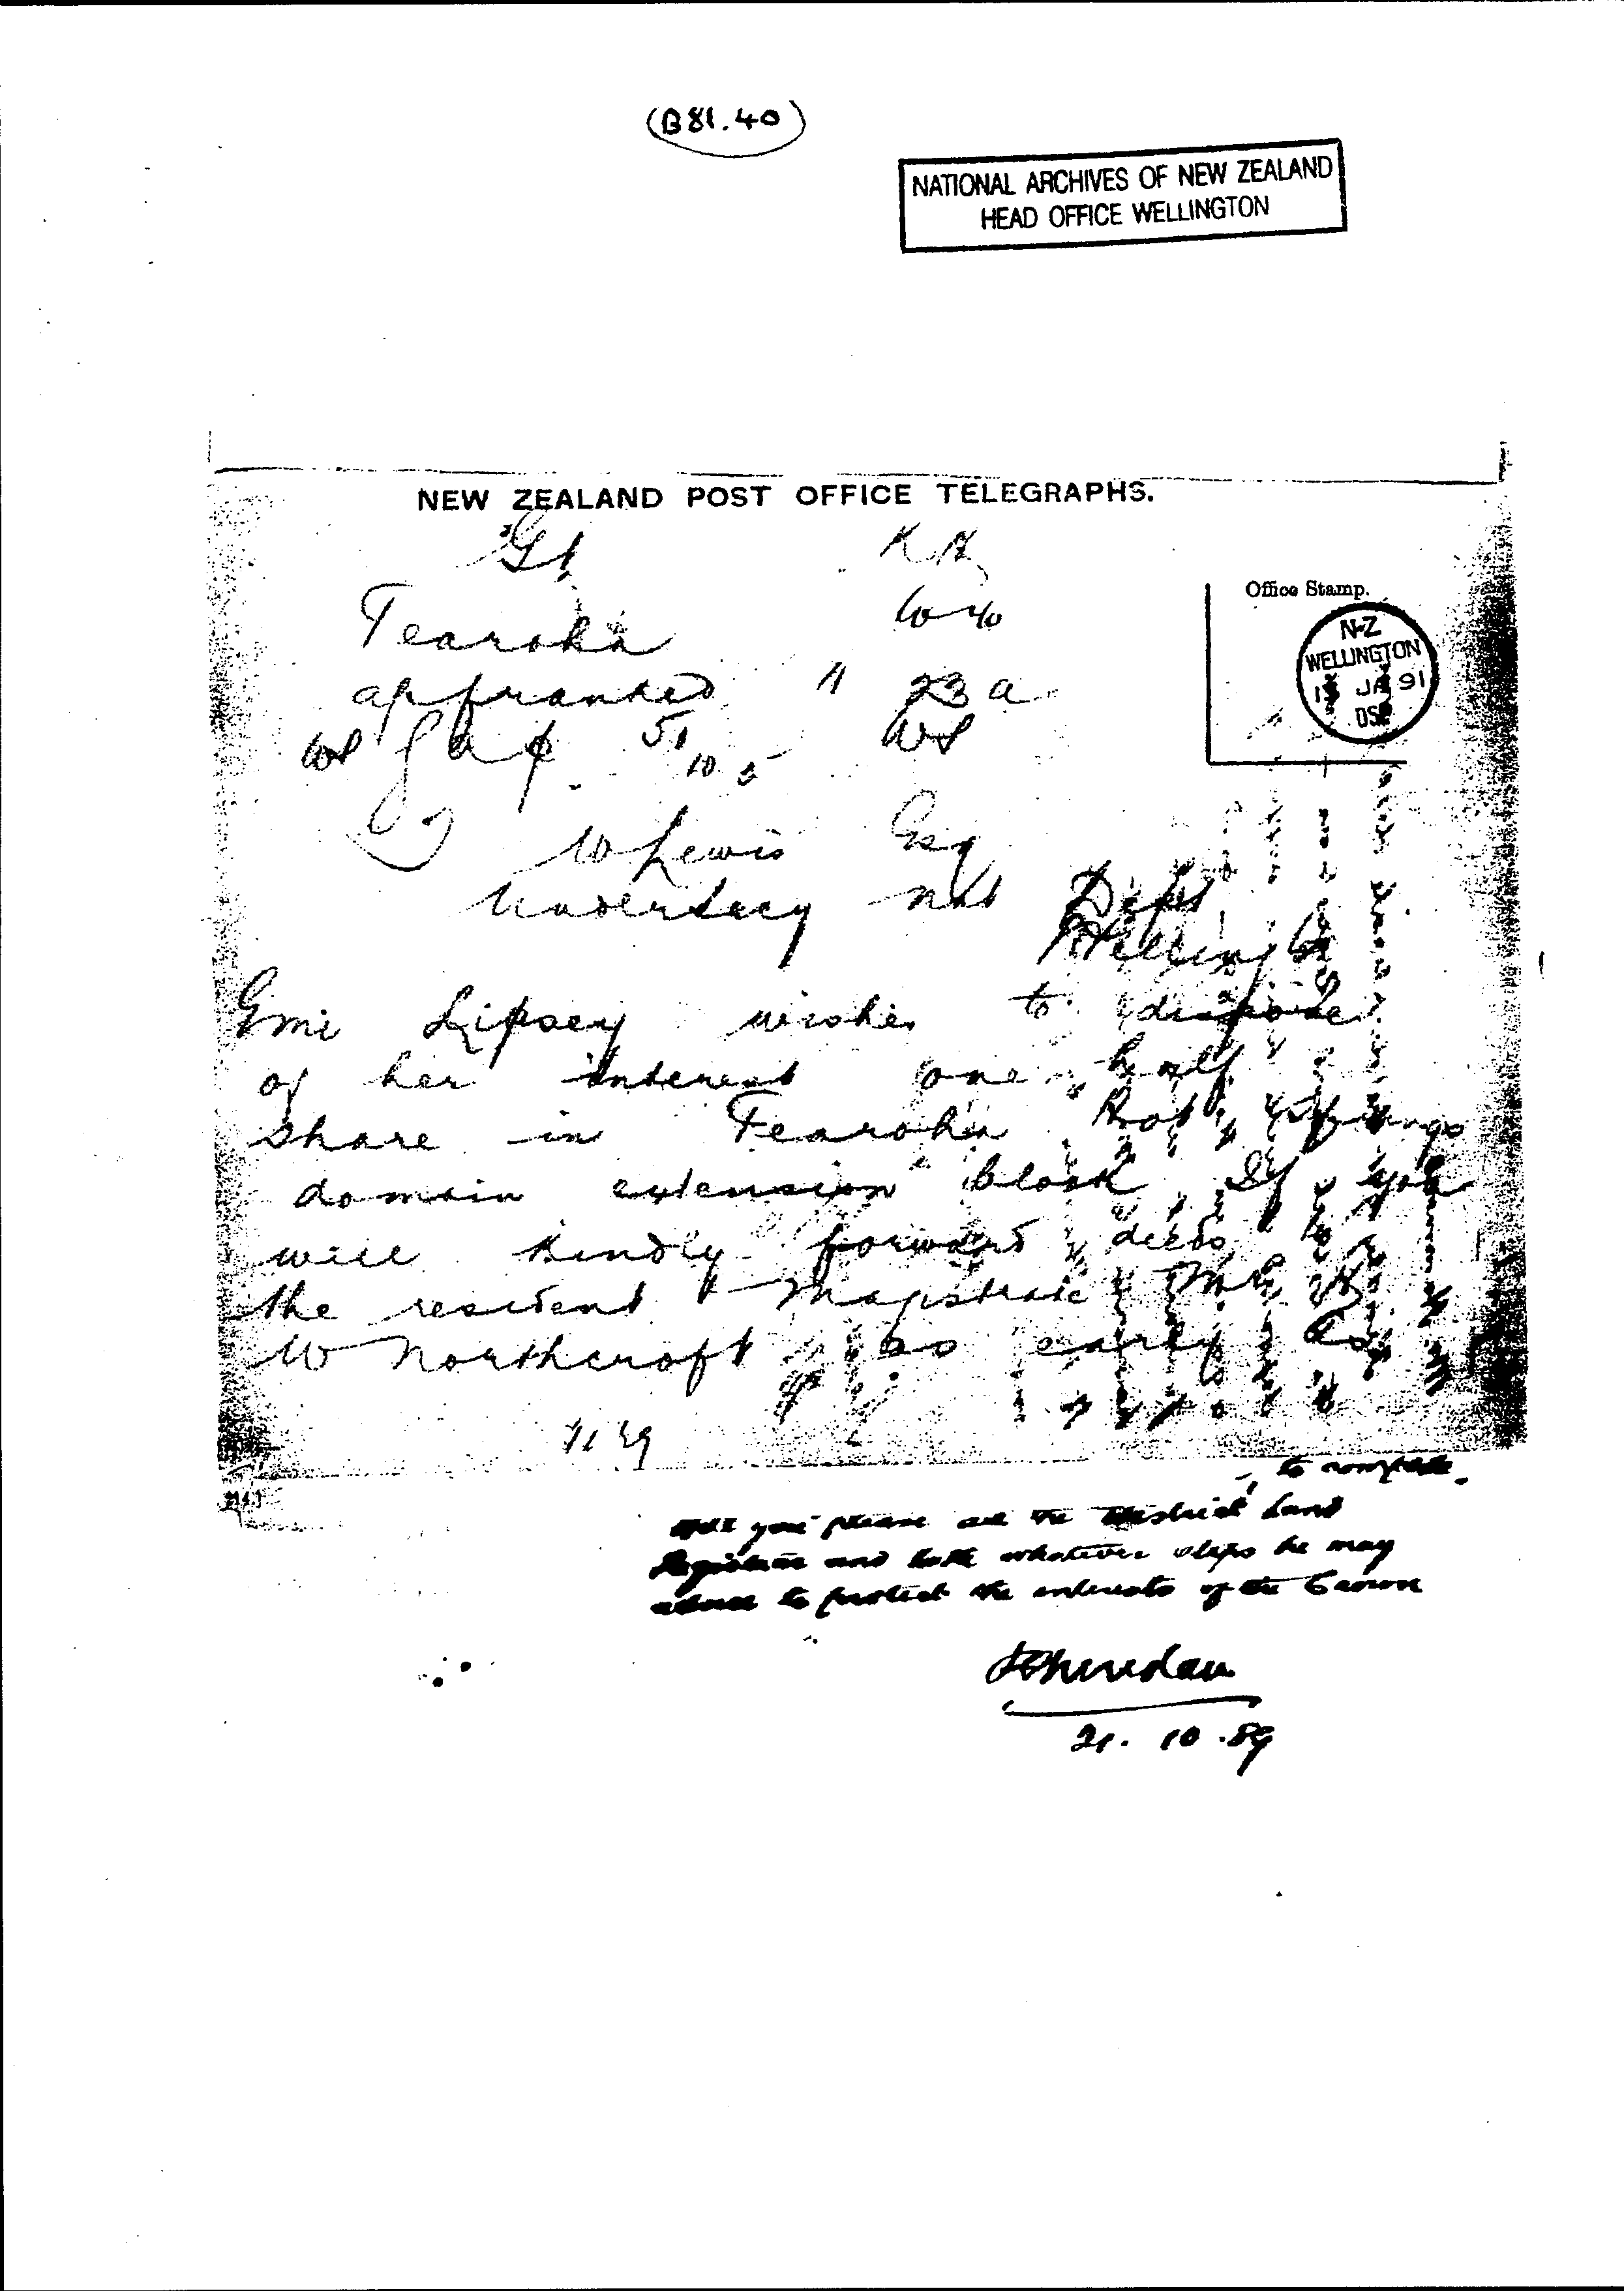 (B81.40)
NATIONAL ARCHIVES OF NEW ZEALAND
HEAD OFFICE WELLINGTON
NEW ZEALAND POST OFFICE TELEGRAPHS.
Tearoha
Office Stamp.
N-Z
WELLINGTON
JA 91
" 23 a
W Lewis Esq
Undersecy Nat Dept
Wellingtn
Emi Lipsey wishes to dispose
of her interest one half
share in Tearoha Hot Springs
domain extension block If you
will kindly forward deeds to
the resident Magistrate
W Northcroft as early as
to complete.
Will you please see the District Land
Registrar and take whatever steps he may
advise to protect the interests of the Crown
Sheridan
21. 10. 89